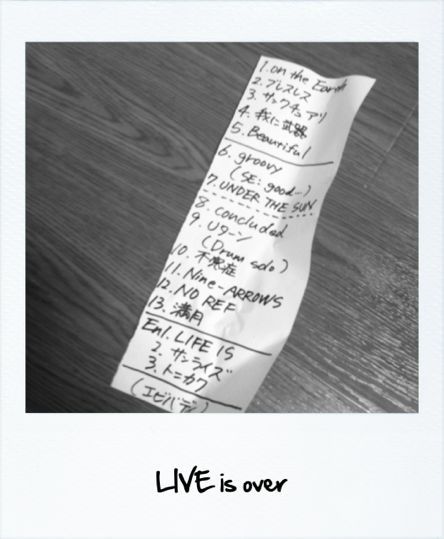 1. on the Earth
2. ブレスレス
3. サンクチュアリ
4. 我に武器
5. Beautiful
6. groovy
(SE: good…)
7. UNDER THE SUN
8. concluded
9. Uターン
(Drum solo)
10. 不感症
11. Nine-ARROWS
12. NO REF
13. 満月
En1. LIFE IS
2. サンライズ
3. トニカク
(エビバディ)
LIVE is over